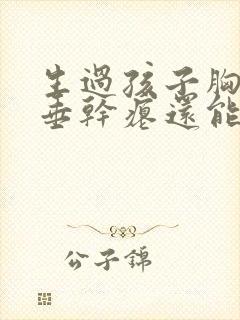 生過孩子胸
垂幹癟還能
公子錦